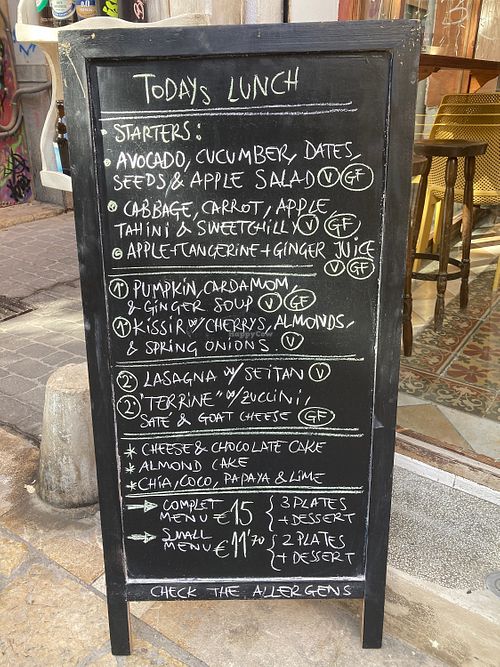 TODAYs LUNCH
• STARTERS:
• AVOCADO, CUCUMBER, DATES,
SEEDS, & APPLE SALAD V GF
• CABBAGE, CARROT, APPLE,
TAHINI & SWEETCHILLY V GF
• APPLE+TANGERINE+GINGER JUICE
V GF
1º PUMPKIN, CARDAMOM,
& GINGER SOUP V GF
1º KISSIR W/ CHERRYS, ALMONDS,
& SPRING ONIONS. V
2º LASAGNA W/ SEITAN V
2º "TERRINE" W/ ZUCCINI,
SATE & GOAT CHEESE GF
* CHEESE & CHOCOLATE CAKE
* ALMOND CAKE
* CHIA, COCO, PAPAYA & LIME
→ COMPLET
MENU €15 { 3 PLATES
+ DESSERT
→ SMALL
MENU €11'70 { 2 PLATES
+ DESSERT
CHECK THE ALLERGENS